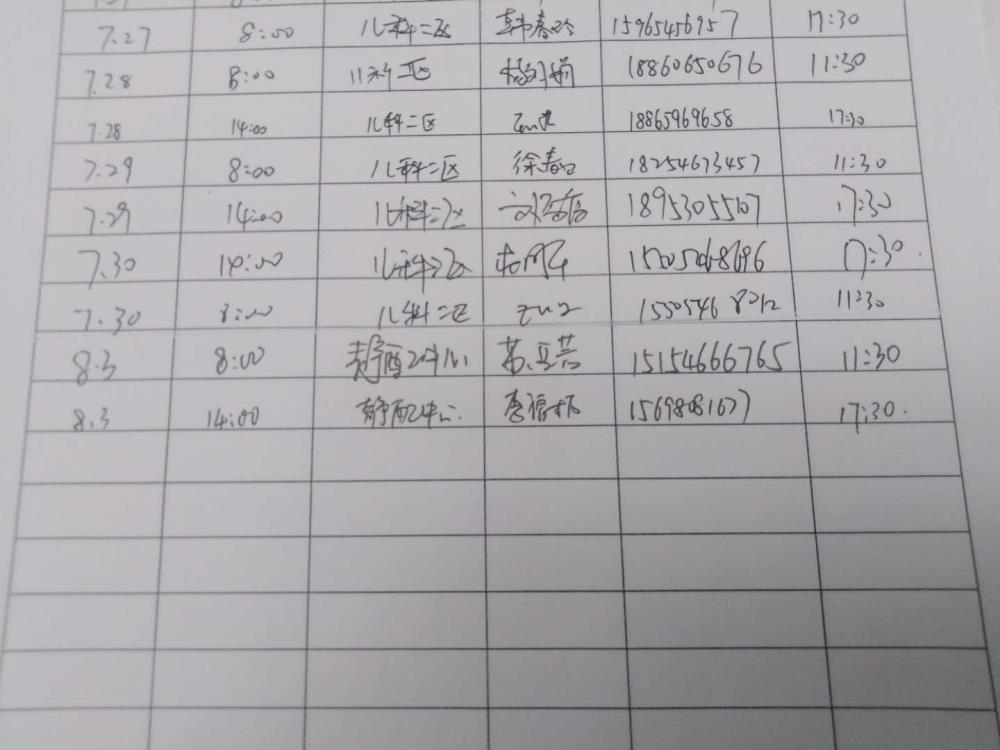 7.27 8:00 儿科二区 韩春玲 15965456957 17:30
7.28 8:00 儿科二区 18860650676 11:30
7.28 14:00 儿科二区 18865969658 17:30
7.29 8:00 儿科二区 徐春 18254673457 11:30
7.29 14:00 儿科二区 18953055107 17:30
7.30 14:00 儿科二区 17:30
7.30 8:00 儿科二区 15505468012 11:30
8.3 8:00 静配中心 15154666765 11:30
8.3 14:00 静配中心 李福栋 15698081677 17:30